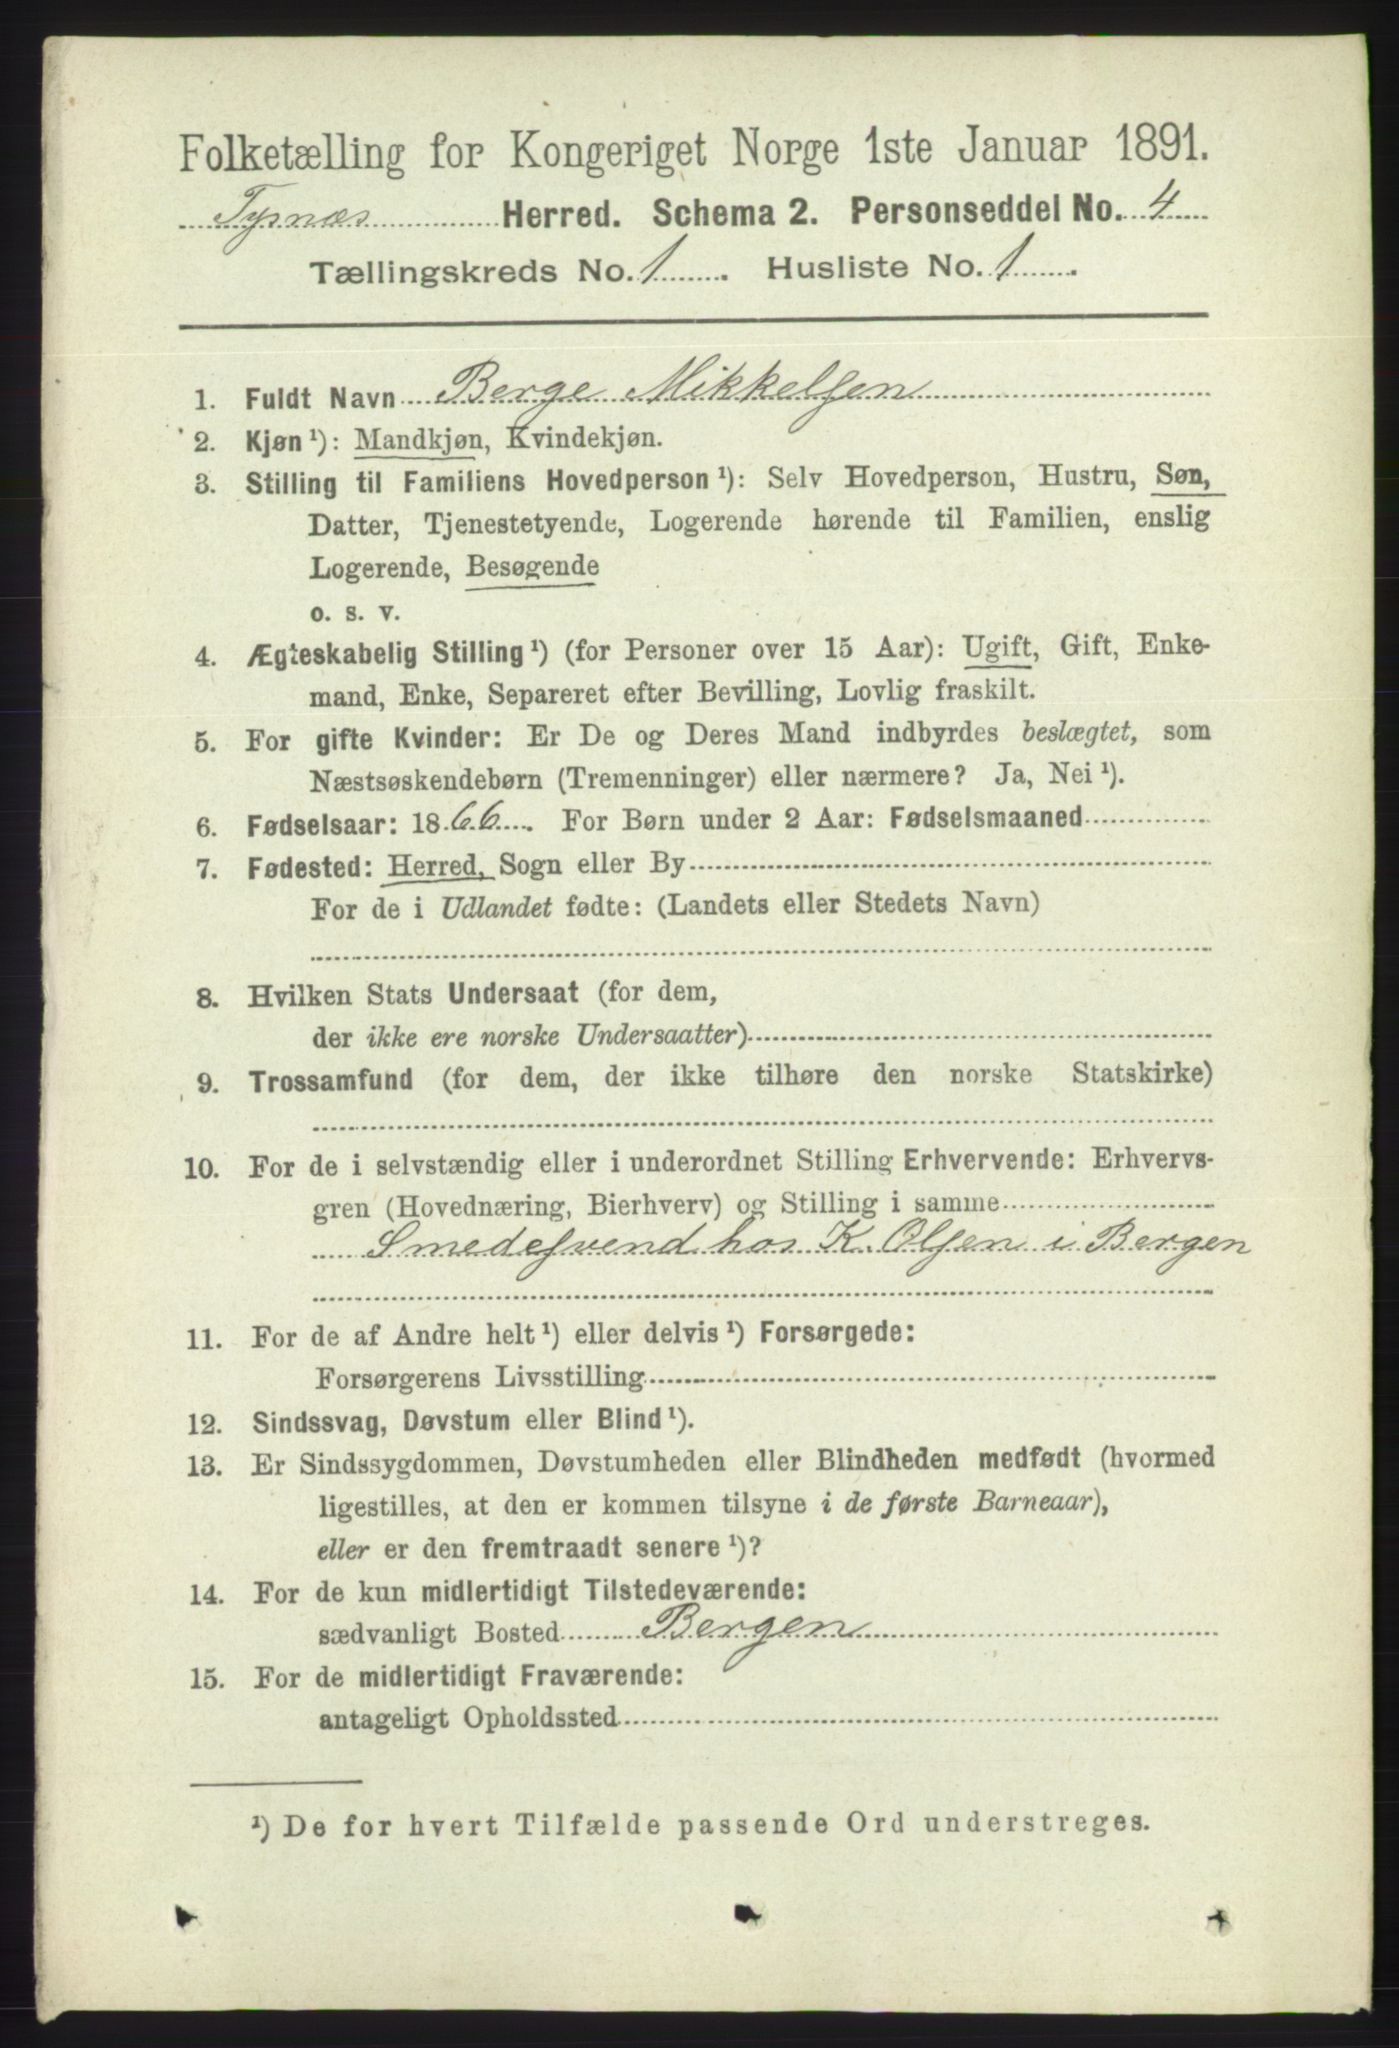 Folketælling for Kongeriget Norge 1ste Januar 1891.
Tysnæs Herred. Schema 2. Personseddel No. 4
Tællingskreds No. 1. Husliste No. 1.
1. Fuldt Navn Berge Mikkelsen
2. Kjøn ¹): Mandkjøn, Kvindekjøn.
3. Stilling til Familiens Hovedperson ¹): Selv Hovedperson, Hustru, Søn,
Datter, Tjenestetyende, Logerende hørende til Familien, enslig
Logerende, Besøgende
o. s. v.
4. Ægteskabelig Stilling ¹) (for Personer over 15 Aar): Ugift, Gift, Enke-
mand, Enke, Separeret efter Bevilling, Lovlig fraskilt.
5. For gifte Kvinder: Er De og Deres Mand indbyrdes beslægtet, som
Næstsøskendebørn (Tremenninger) eller nærmere? Ja, Nei ¹).
6. Fødselsaar: 1866. For Børn under 2 Aar: Fødselsmaaned
7. Fødested: Herred, Sogn eller By
For de i Udlandet fødte: (Landets eller Stedets Navn)
8. Hvilken Stats Undersaat (for dem,
der ikke ere norske Undersaatter)
9. Trossamfund (for dem, der ikke tilhøre den norske Statskirke)
10. For de i selvstændig eller i underordnet Stilling Erhvervende: Erhvervs-
gren (Hovednæring, Bierhverv) og Stilling i samme
Smedesvend hos K. Olsen i Bergen
11. For de af Andre helt ¹) eller delvis ¹) Forsørgede:
Forsørgerens Livsstilling
12. Sindssvag, Døvstum eller Blind ¹).
13. Er Sindssygdommen, Døvstumheden eller Blindheden medfødt (hvormed
ligestilles, at den er kommen tilsyne i de første Barneaar),
eller er den fremtraadt senere ¹)?
14. For de kun midlertidigt Tilstedeværende:
sædvanligt Bosted Bergen
15. For de midlertidigt Fraværende:
antageligt Opholdssted
¹) De for hvert Tilfælde passende Ord understreges.